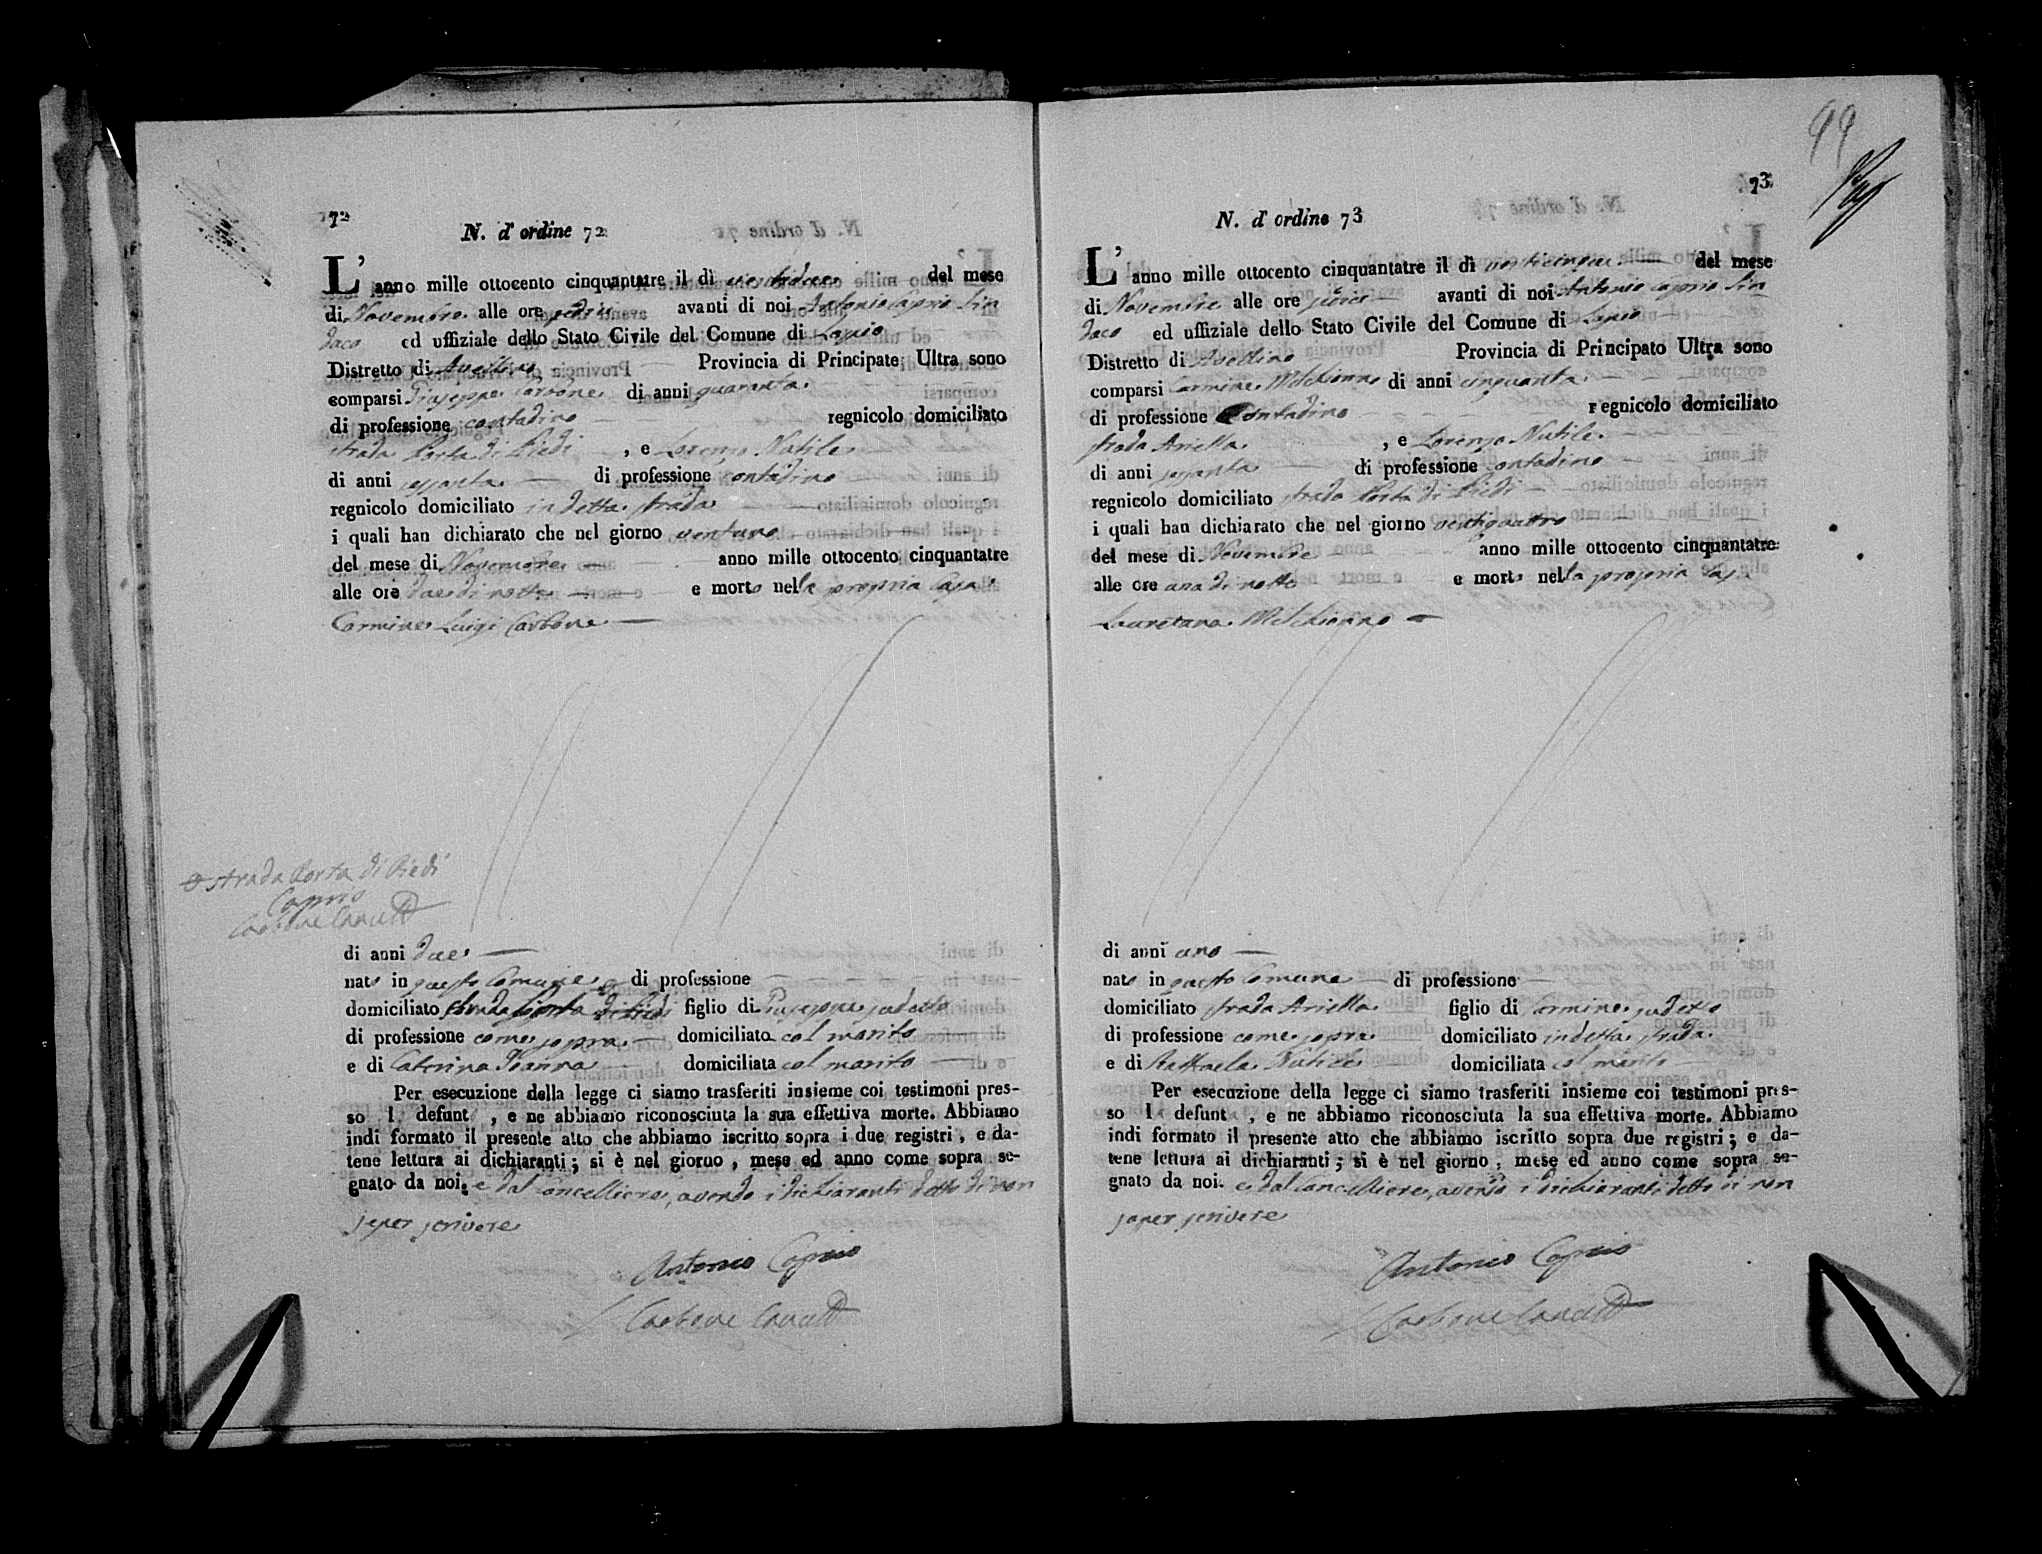 72
N. d' ordine 72
L' anno mille ottocento cinquantatre il dì ventidue del mese
di Novembre alle ore sedici avanti di noi Antonio Caprio Sin
daco ed uffiziale dello Stato Civile del Comune di Lapio
Distretto di Avellino Provincia di Principato Ultra sono
comparsi Giuseppe Carbone di anni quaranta
di professione contadino regnicolo domiciliato
strada Porta di Piedi , e Lorenzo Nutile
di anni sessanta di professione contadino
regnicolo domiciliato in detta strada
i quali han dichiarato che nel giorno ventuno
del mese di Novembre anno mille ottocento cinquantatre
alle ore due di notte e morto nella propria casa
Carmine Luigi Carbone
strada Porta di Piedi
Caprio
Carbone Canc
di anni due
nato in questo Comune di professione
domiciliato strada Porta di Piedi figlio di Giuseppe sudetto
di professione come sopra domiciliato col marito
e di Caterina Ioanna domiciliata col marito
Per esecuzione della legge ci siamo trasferiti insieme coi testimoni pres-
so l defunt , e ne abbiamo riconosciuta la sua effettiva morte. Abbiamo
indi formato il presente atto che abbiamo iscritto sopra i due registri, e da-
tene lettura ai dichiaranti; si è nel giorno, mese ed anno come sopra se-
gnato da noi, e dal cancelliere, avendo i dichiaranti detto di non
saper scrivere
Antonio Caprio
Carbone Canc
99
73
N. d' ordine 73
L' anno mille ottocento cinquantatre il dì venticinque del mese
di Novembre alle ore sedici avanti di noi Antonio Caprio Sin
daco ed uffiziale dello Stato Civile del Comune di Lapio
Distretto di Avellino Provincia di Principato Ultra sono
comparsi Carmine Melchionno di anni cinquanta
di professione Contadino regnicolo domiciliato
strada Ariella , e Lorenzo Nutile
di anni sessanta di professione contadino
regnicolo domiciliato strada Porta di Piedi
i quali han dichiarato che nel giorno ventiquattro
del mese di Novembre anno mille ottocento cinquantatre
alle ore una di notte e morto nella propria casa
Lauretana Melchionno
di anni uno
nato in questo Comune di professione
domiciliato strada Ariella figlio di Carmine sudetto
di professione come sopra domiciliato in detta strada
e di Raffaela Nutile domiciliata col marito
Per esecuzione della legge ci siamo trasferiti insieme coi testimoni pres-
so l defunt , e ne abbiamo riconosciuta la sua effettiva morte. Abbiamo
indi formato il presente atto che abbiamo iscritto sopra due registri; e da-
tene lettura ai dichiaranti; si è nel giorno, mese ed anno come sopra se-
gnato da noi. e dal cancelliere, avendo i dichiaranti detto di non
saper scrivere
Antonio Caprio
Carbone Canc